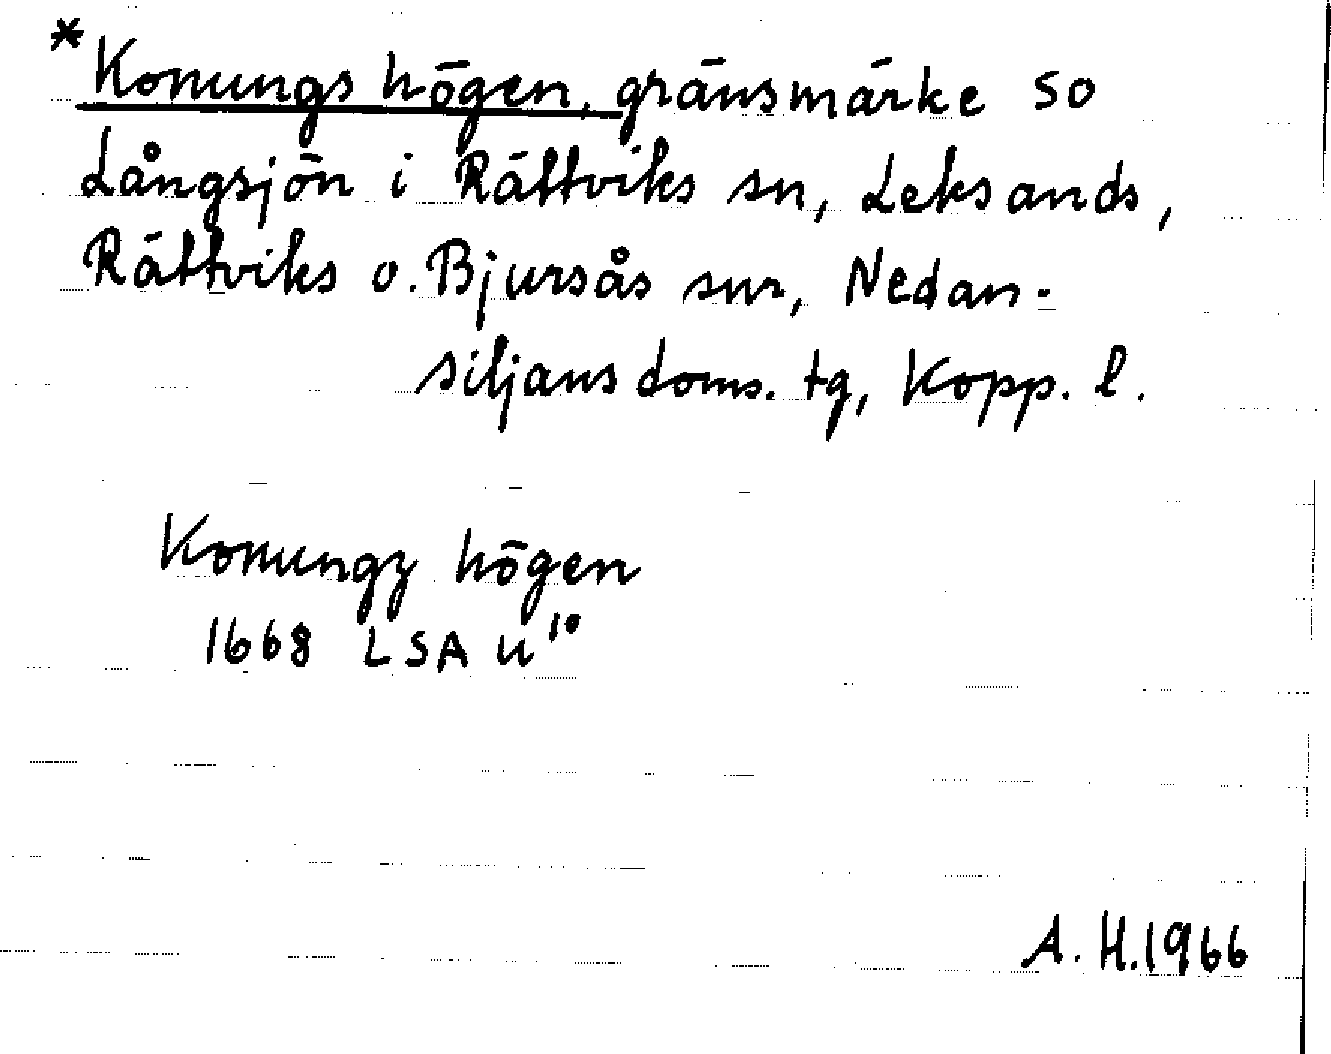 *Konungs högen, gränsmärke SO
Långsjön i Rättviks sn, Leksands,
Rättviks o. Bjursås snr, Nedan-
siljans doms. tg, Kopp. l.
Konungz högen
1668 LSA U¹⁰
A. H. 1966